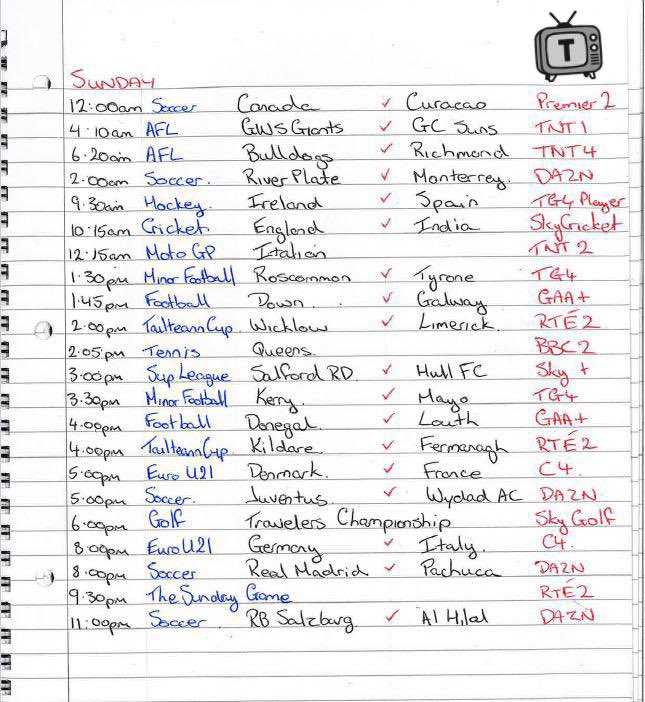 T
SUNDAY
12:00am Soccer Canada ✓ Curacao Premier 2
4.10am AFL GWS Giants ✓ GC Suns TNT 1
6.20am AFL Bulldogs ✓ Richmond TNT 4
2.00am Soccer. River Plate ✓ Monterrey. DAZN
9.30am Hockey. Ireland ✓ Spain TG4 Player
10.15am Cricket. England ✓ India Sky Cricket
12.15am Moto GP Italian TNT 2
1.30pm Minor Football Roscommon ✓ Tyrone TG4
1.45pm Football Down. ✓ Galway GAA+
2.00pm Tailteann Cup. Wicklow ✓ Limerick. RTÉ2
2.05pm Tennis Queens. BBC2
3.00pm Sup League Salford RD ✓ Hull FC Sky +
3.30pm Minor Football Kerry ✓ Mayo TG4
4.00pm Football Donegal. ✓ Louth GAA+
4.00pm Tailteann Cup. Kildare ✓ Fermanagh RTÉ2
5.00pm Euro U21 Denmark. ✓ France C4.
5.00pm Soccer. Juventus. ✓ Wydad AC DAZN
6.00pm Golf Travelers Championship Sky Golf
8.00pm Euro U21 Germany ✓ Italy. C4.
8.00pm Soccer Real Madrid ✓ Pachuca DAZN
9.30pm The Sunday Game RTÉ2
11.00pm Soccer RB Salzburg ✓ Al Hilal DAZN